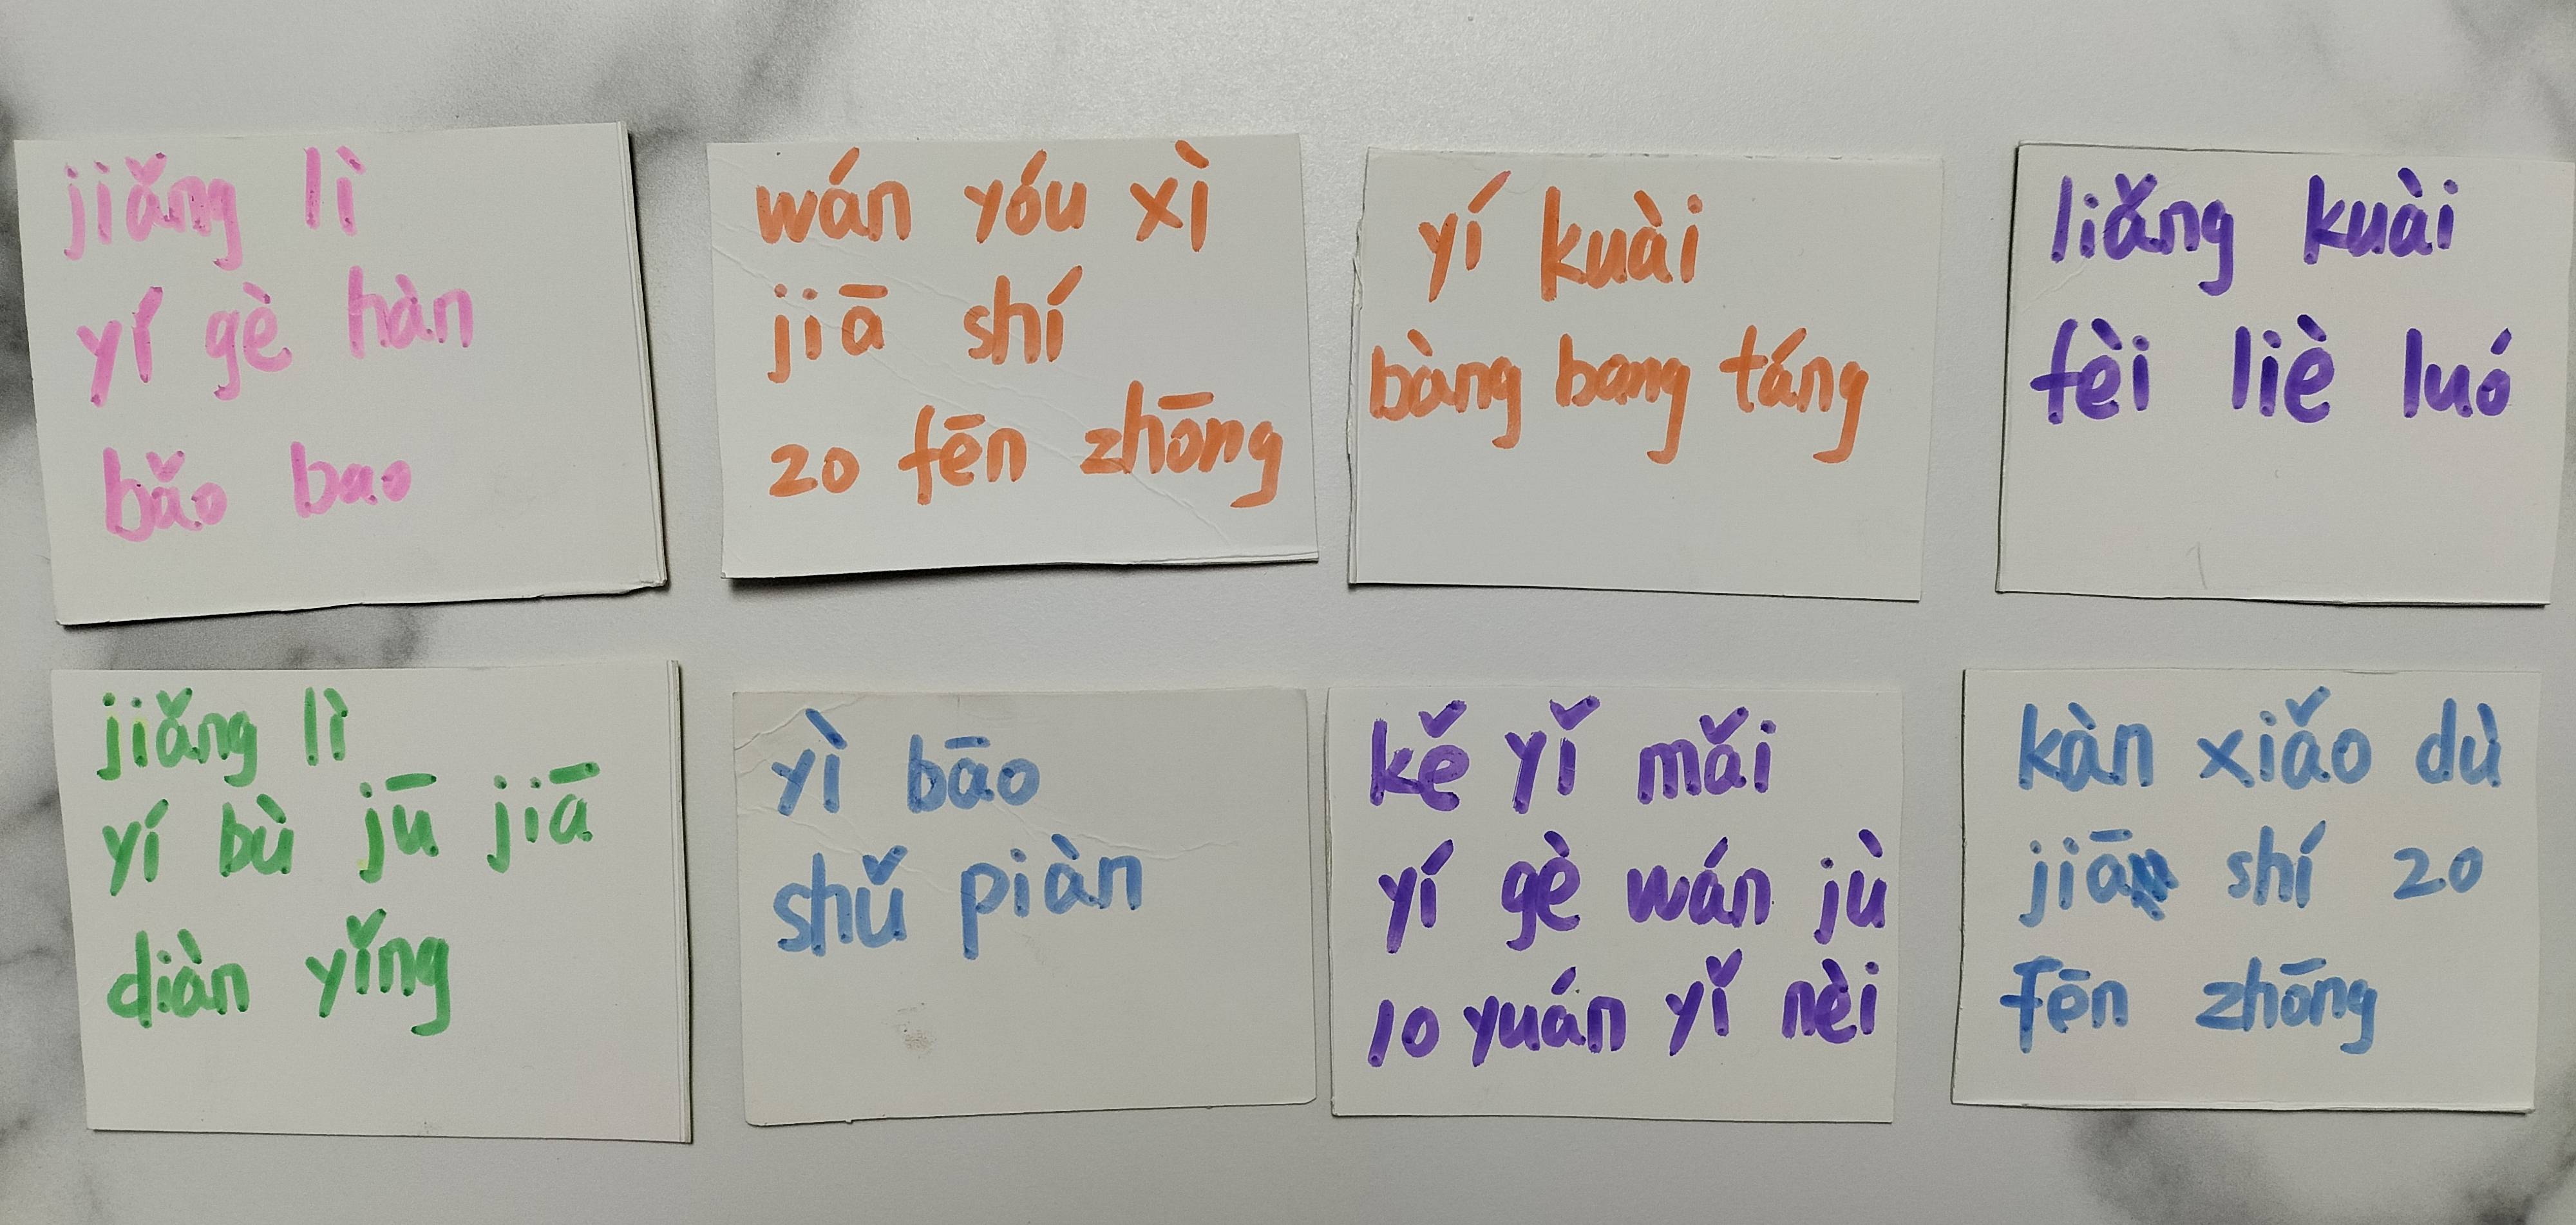 jiǎng lì
yí gè hàn
bǎo bao
wán yóu xì
jiā shí
20 fēn zhōng
yí kuài
bàng bang táng
liǎng kuài
fèi liè luó
jiǎng lì
yí bù jū jiā
diàn yǐng
yì bāo
shǔ piàn
kě yǐ mǎi
yí gè wán jù
10 yuán yǐ nèi
kàn xiǎo dù
jiā shí 20
fēn zhōng